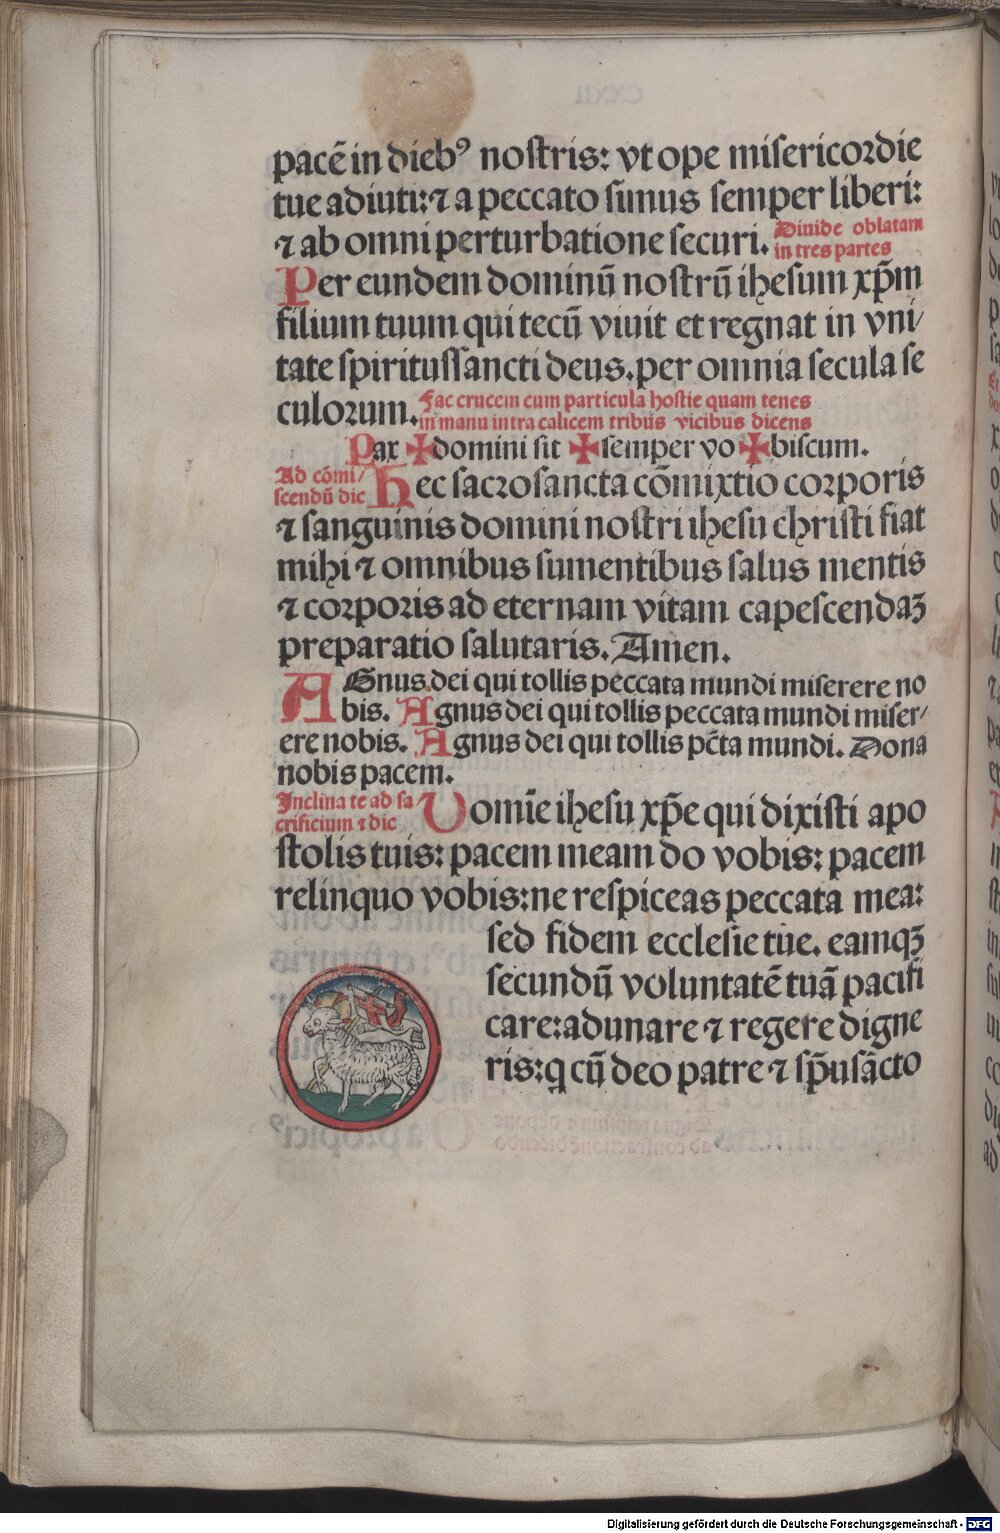 pacē in diebꝰ nostris: vt ope misericordie
tue adiuti: ⁊ a peccato simus semper liberi:
⁊ ab omni perturbatione securi. Diuide oblatam
in tres partes
Per eundem dominū nostrū ihesum xp̄m
filium tuum qui tecū viuit et regnat in vni/
tate spiritussancti deus. per omnia secula se
culorum. Fac crucem cum particula hostie quam tenes
in manu intra calicem tribus vicibus dicens
Pax ✠ domini sit ✠ semper vo ✠ biscum.
Ad cōmi/
scendū dic Hec sacrosancta cōmixtio corporis
⁊ sanguinis domini nostri ihesu christi fiat
mihi ⁊ omnibus sumentibus salus mentis
⁊ corporis ad eternam vitam capescendaꝫ
preparatio salutaris. Amen.
AGnus dei qui tollis peccata mundi miserere no
bis. Agnus dei qui tollis peccata mundi miser/
ere nobis. Agnus dei qui tollis pct̄a mundi. Dona
nobis pacem.
Inclina te ad sa
crificium ⁊ dic Domīe ihesu xp̄e qui dixisti apo
stolis tuis: pacem meam do vobis: pacem
relinquo vobis: ne respiceas peccata mea:
sed fidem ecclesie tue. eamqꝫ
secundū voluntatē tuā pacifi
care: adunare ⁊ regere digne
ris: q cū deo patre ⁊ sp̄usācto
Digitalisierung gefördert durch die Deutsche Forschungsgemeinschaft - DFG